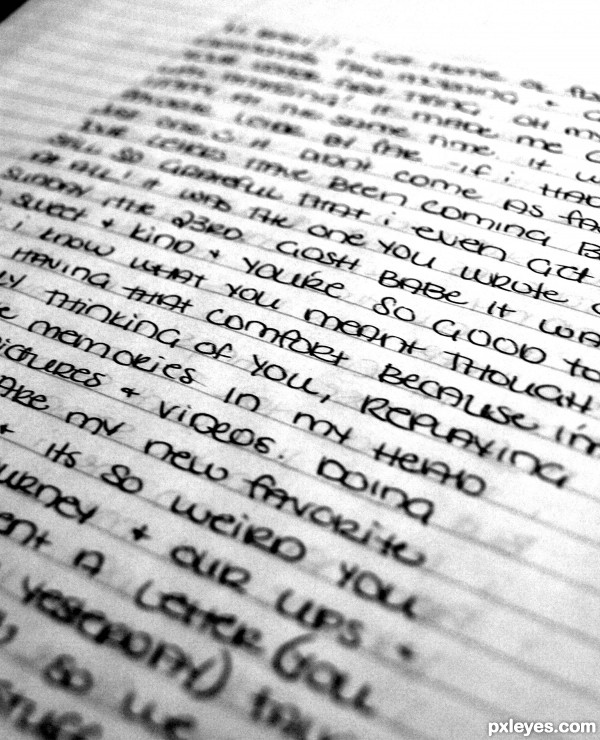 HOME A
THIS MORNING +
FIRST THING. OH MY
IT MADE ME
AT THE SAME TIME. IT W
LOVE BY FAR - IF i HAD
ONE. & IT DIDNT COME AS FA
LETTERS HAVE BEEN COMING B
SO GRATEFUL THAT i EVEN GOT
AT ALL! IT WAS THE ONE YOU WROTE
SUNDAY THE 23RD. GOSH BABE IT WA
SWEET + KIND + YOU'RE SO GOOD TO
i KNOW WHAT YOU MEANT THOUGH
HAVING THAT COMFORT BECAUSE i'm
LY THINKING OF YOU, REPLAYING
E MEMORIES IN MY HEAD
ICTURES + VIDEOS. DOING
ARE MY NEW FAVORITE
+ ITS SO WEIRD YOU
URNEY + OUR UPS +
ENT A LETTER (YOU
YESTERDAY)
, SO WE
STUFF
pxleyes.com